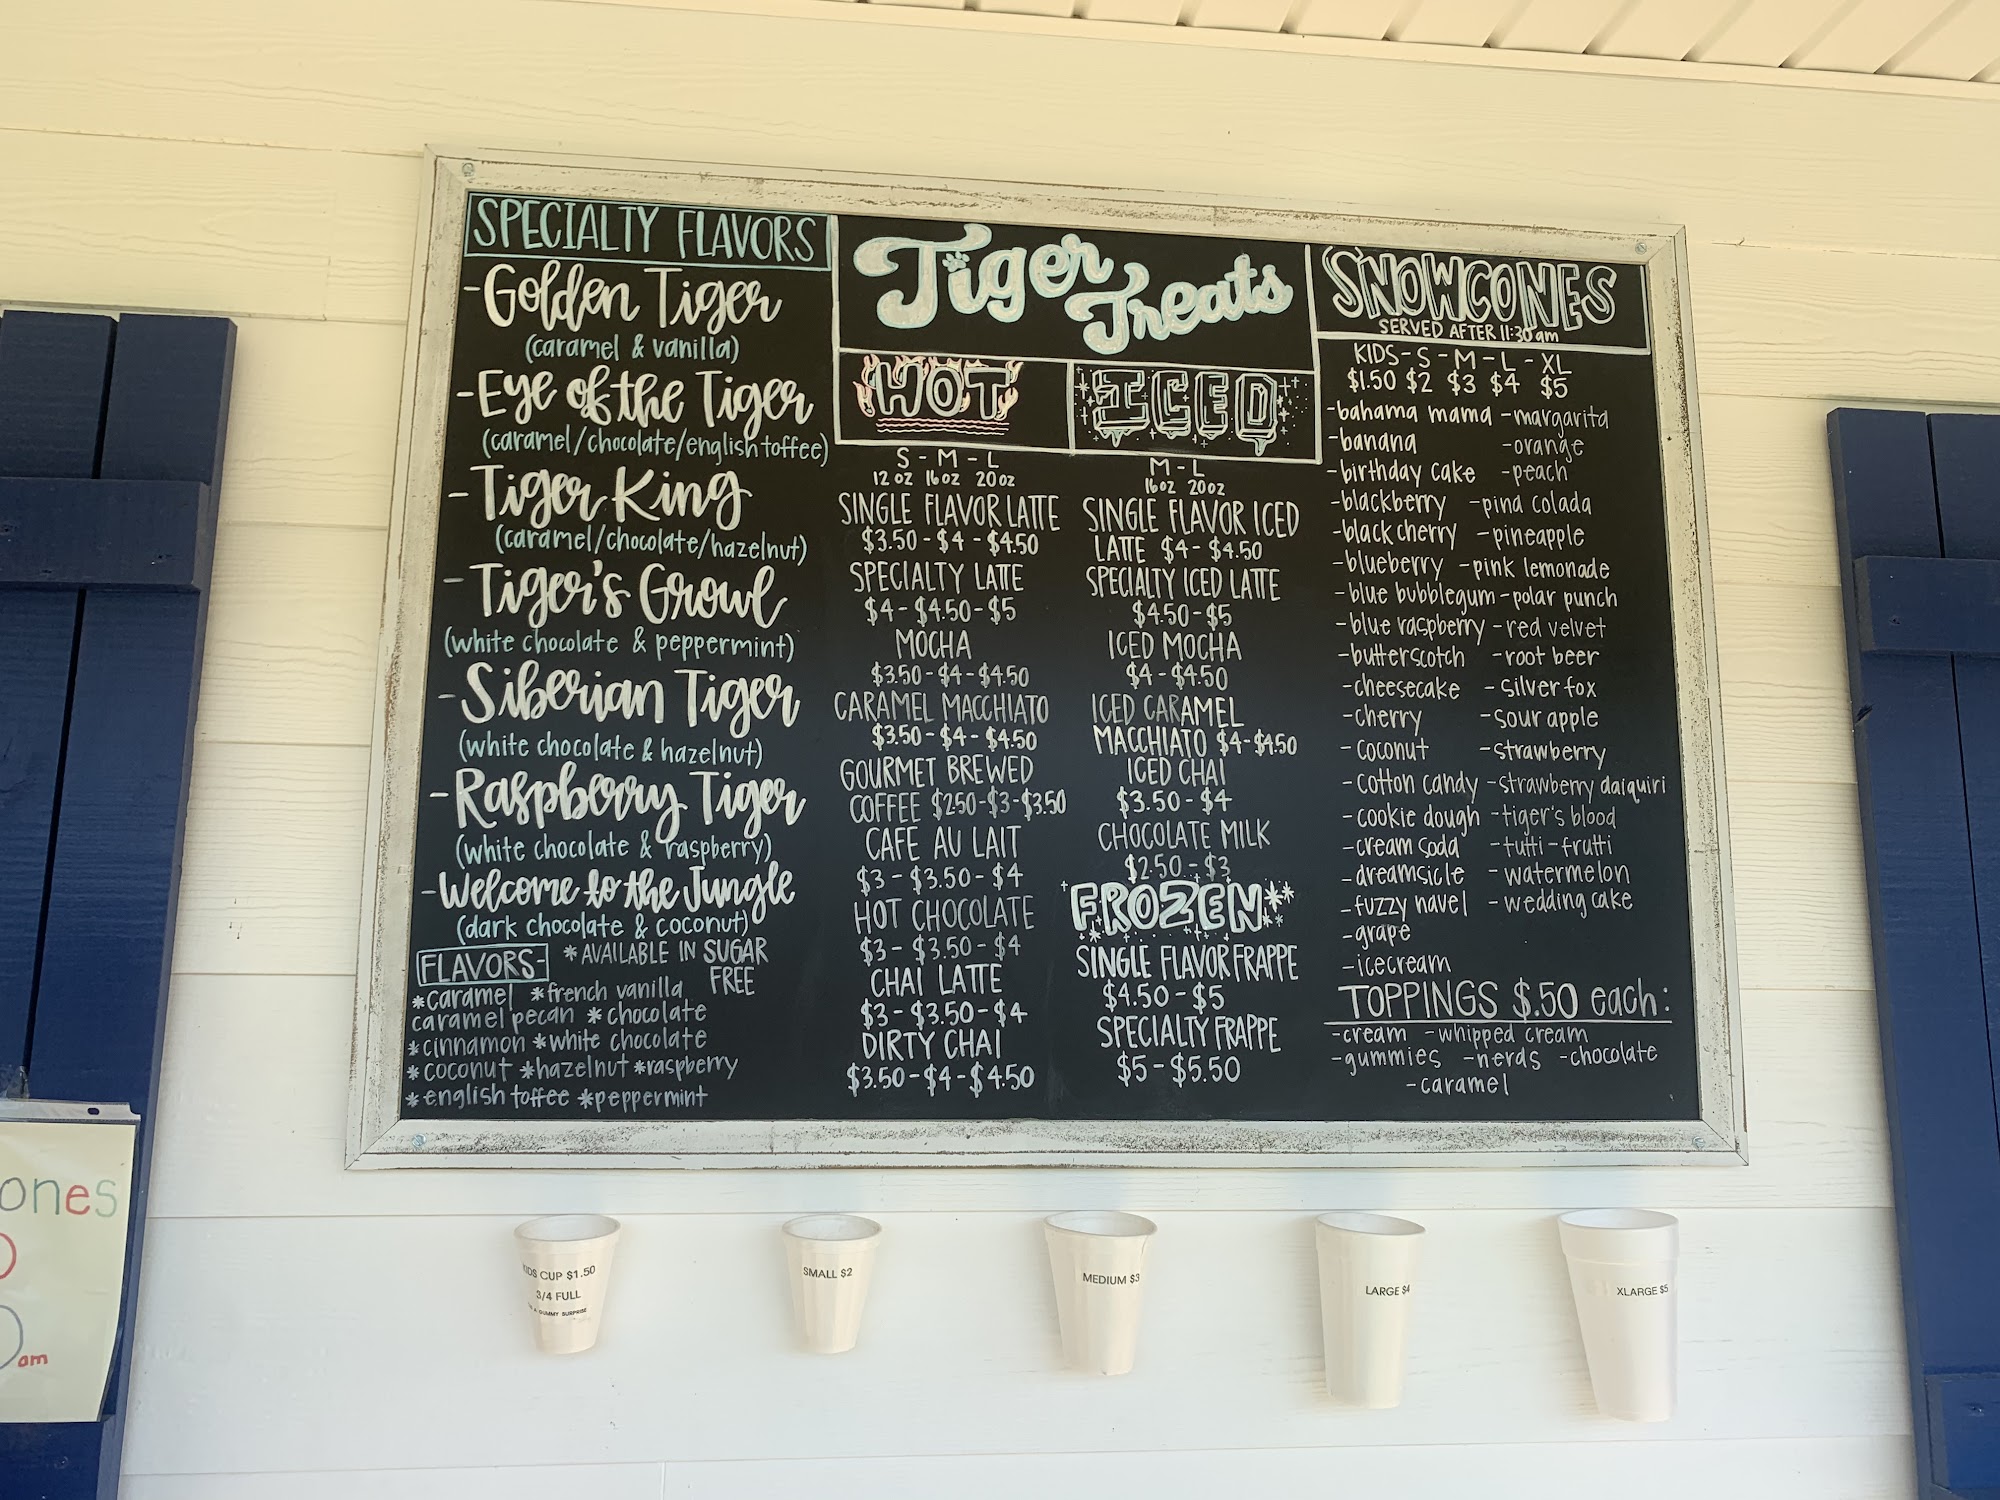 SPECIALTY FLAVORS
-Golden Tiger
(caramel & vanilla)
-Eye of the Tiger
(caramel/chocolate/english toffee)
-Tiger King
(caramel/chocolate/hazelnut)
-Tiger's Growl
(white chocolate & peppermint)
-Siberian Tiger
(white chocolate & hazelnut)
-Raspberry Tiger
(white chocolate & raspberry)
-Welcome to the Jungle
(dark chocolate & coconut)
FLAVORS- *AVAILABLE IN SUGAR
FREE
*caramel *french vanilla
caramel pecan *chocolate
*cinnamon *white chocolate
*coconut *hazelnut *raspberry
*english toffee *peppermint
Tiger
Treats
HOT
S - M - L
12 oz 16 oz 20 oz
SINGLE FLAVOR LATTE
$3.50 - $4 - $4.50
SPECIALTY LATTE
$4 - $4.50 - $5
MOCHA
$3.50 - $4 - $4.50
CARAMEL MACCHIATO
$3.50 - $4 - $4.50
GOURMET BREWED
COFFEE $2.50 - $3 - $3.50
CAFE AU LAIT
$3 - $3.50 - $4
HOT CHOCOLATE
$3 - $3.50 - $4
CHAI LATTE
$3 - $3.50 - $4
DIRTY CHAI
$3.50 - $4 - $4.50
ICED
M - L
16oz 20oz
SINGLE FLAVOR ICED
LATTE $4 - $4.50
SPECIALTY ICED LATTE
$4.50 - $5
ICED MOCHA
$4 - $4.50
ICED CARAMEL
MACCHIATO $4 - $4.50
ICED CHAI
$3.50 - $4
CHOCOLATE MILK
$2.50 - $3
FROZEN
SINGLE FLAVOR FRAPPE
$4.50 - $5
SPECIALTY FRAPPE
$5 - $5.50
SNOWCONES
SERVED AFTER 11:30am
KIDS - S - M - L - XL
$1.50 $2 $3 $4 $5
-bahama mama -margarita
-banana -orange
-birthday cake -peach
-blackberry -pina colada
-black cherry -pineapple
-blueberry -pink lemonade
-blue bubblegum -polar punch
-blue raspberry -red velvet
-butterscotch -root beer
-cheesecake -silver fox
-cherry -sour apple
-coconut -strawberry
-cotton candy -strawberry daiquiri
-cookie dough -tiger's blood
-cream soda -tutti-frutti
-dreamsicle -watermelon
-fuzzy navel -wedding cake
-grape
-icecream
TOPPINGS $.50 each:
-cream -whipped cream
-gummies -nerds -chocolate
-caramel
ones
am
CUP $1.50
3/4 FULL
GUMMY SURPRISE
SMALL $2
MEDIUM $3
LARGE $4
XLARGE $5